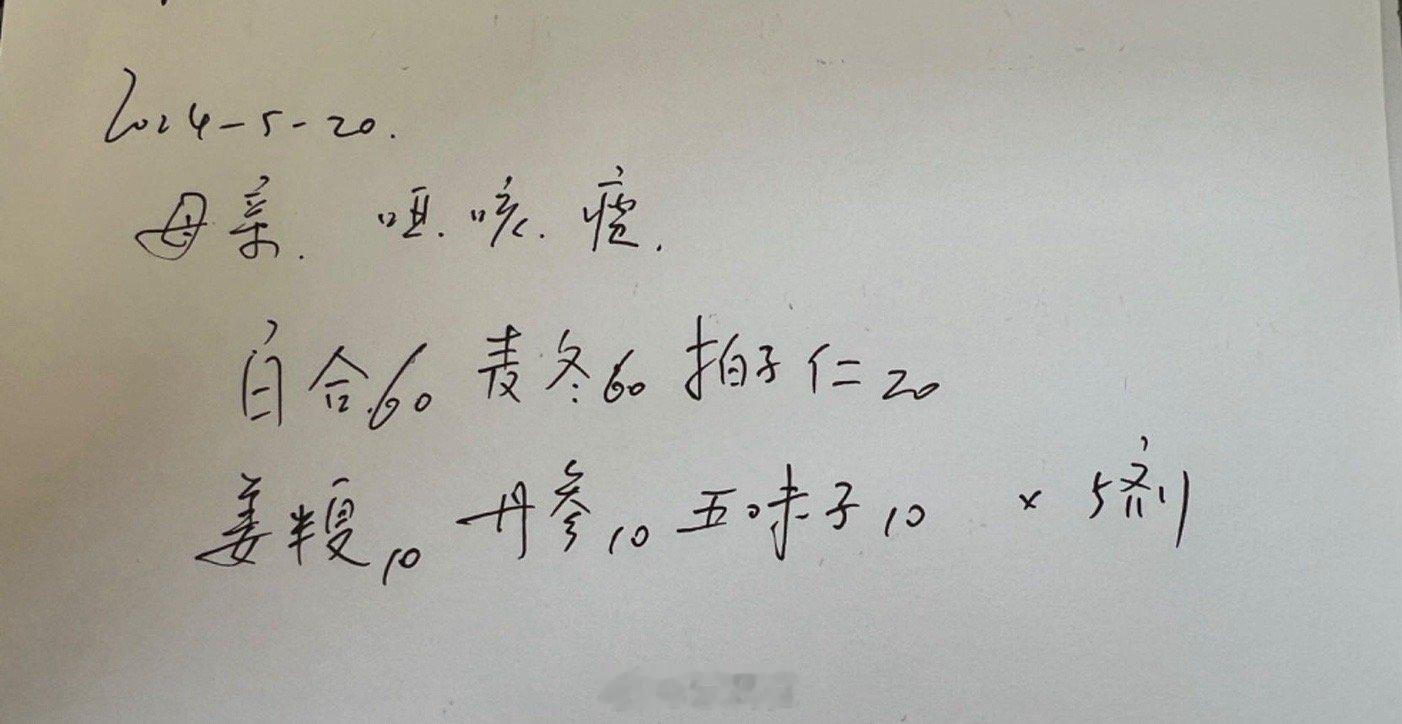 2024-5-20.
母亲. 咽. 咳. 痰.
百合60 麦冬60 柏子仁20
姜半夏10 丹参10 五味子10 × 5剂